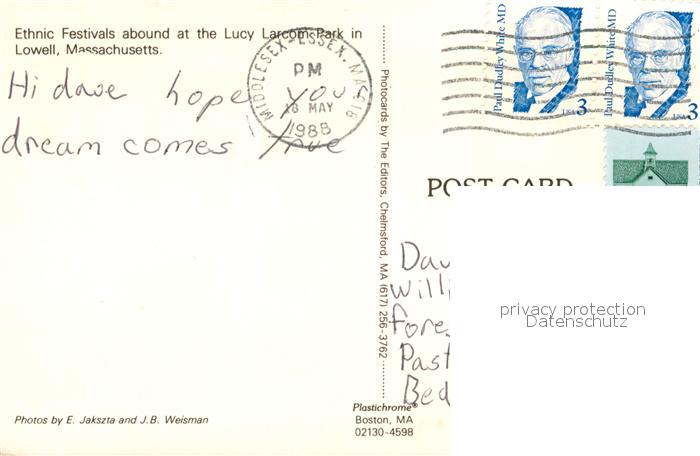 Ethnic Festivals abound at the Lucy Larcom Park in
Lowell, Massachusetts.
Hi dave hope you
dream comes true
MIDDLESEX-ESSEX, MA 018
PM
16 MAY
1988
Photocards by The Editors, Chelmsford, MA (617) 256-3762
Paul Dudley White MD
USA 3
Paul Dudley White MD
USA 3
POST CARD
Dav
Willi
fore
Past
Bed
privacy protection
Datenschutz
Photos by E. Jakszta and J.B. Weisman
Plastichrome®
Boston, MA
02130-4598